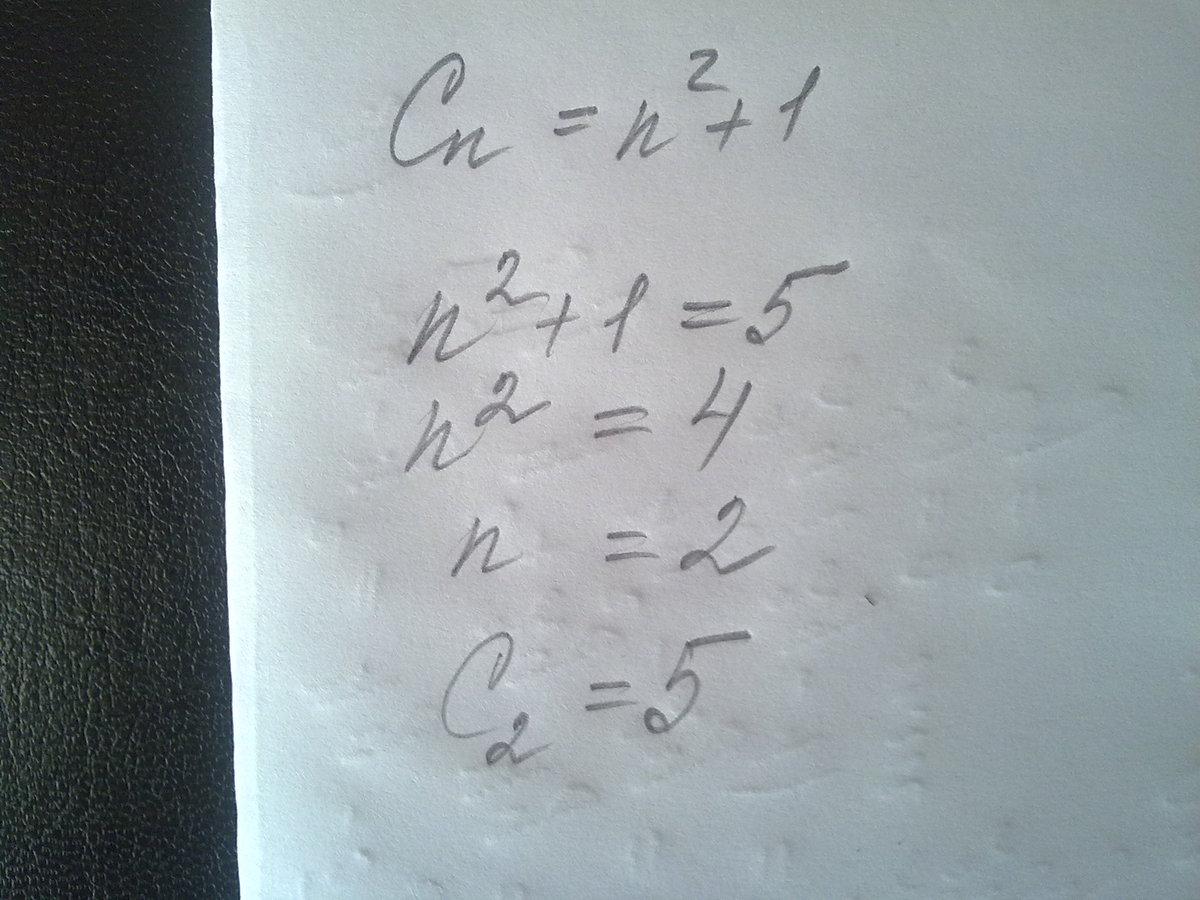 Cₙ = n² + 1
n² + 1 = 5
n² = 4
n = 2
C₂ = 5